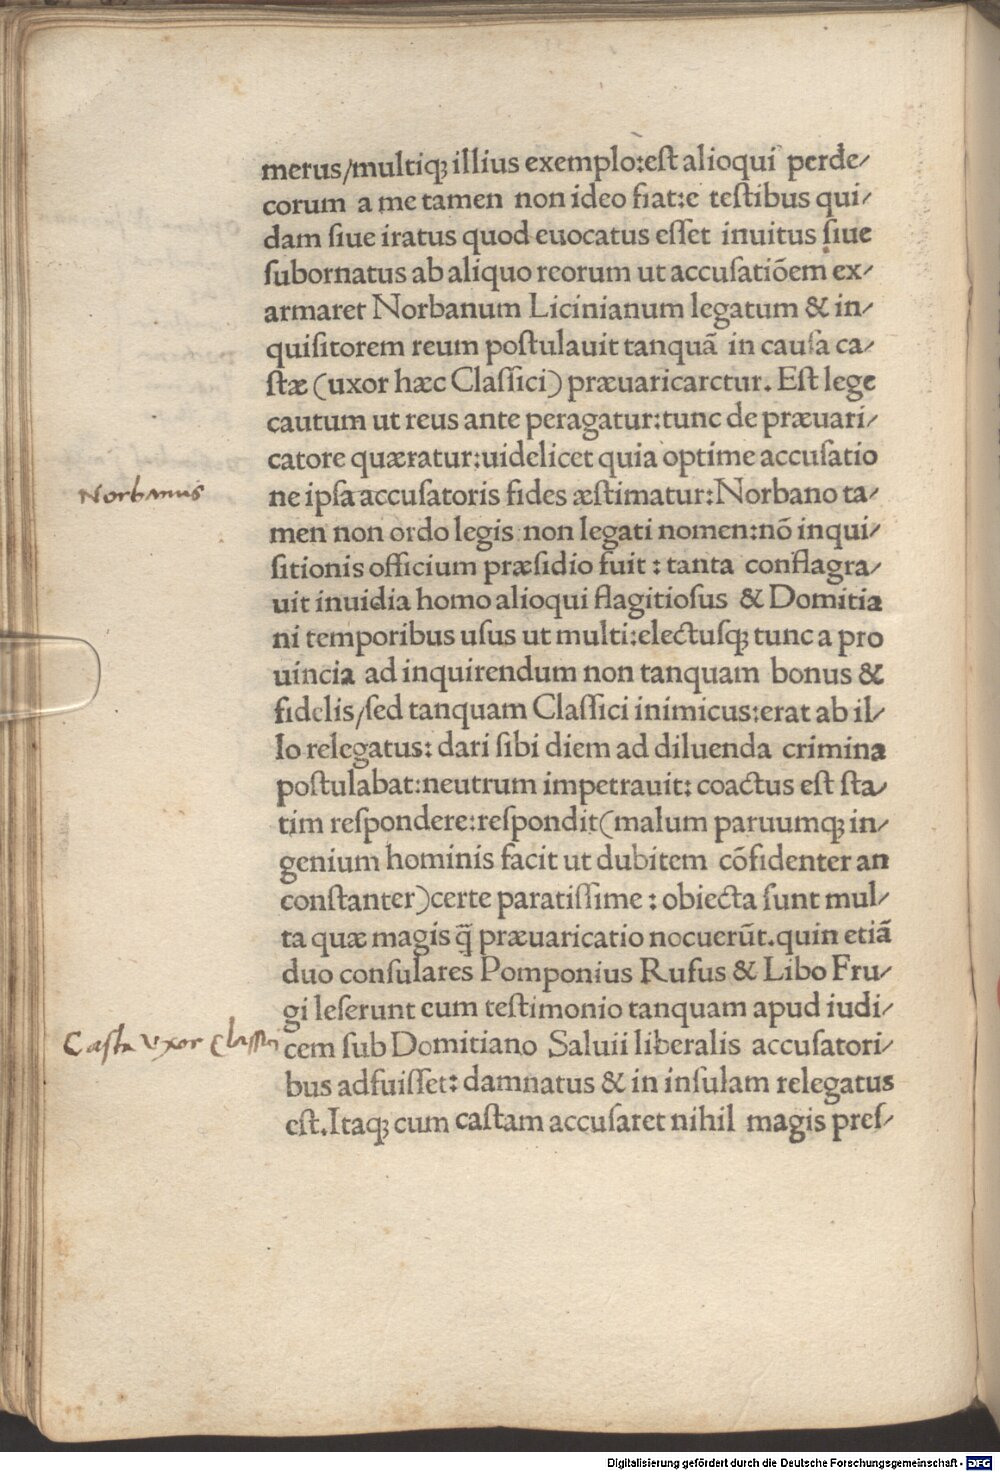 merus/multiq; illius exemplo:est alioqui perde/
corum a me tamen non ideo fiat:e testibus qui/
dam ſiue iratus quod euocatus eſſet inuitus ſiue
ſubornatus ab aliquo reorum ut accuſatiõem ex/
armaret Norbanum Licinianum legatum & in/
quiſitorem reum poſtulauit tanquã in cauſa ca/
ſtæ (uxor hæc Claſſici) præuaricarctur. Eſt lege
cautum ut reus ante peragatur:tunc de præuari/
catore quæratur:uidelicet quia optime accuſatio
Norbanus
ne ipſa accuſatoris fides æſtimatur:Norbano ta/
men non ordo legis non legati nomen:nõ inqui/
ſitionis officium præſidio fuit : tanta conflagra/
uit inuidia homo alioqui flagitioſus & Domitia
ni temporibus uſus ut multi:electuſq; tunc a pro
uincia ad inquirendum non tanquam bonus &
fidelis/ſed tanquam Claſſici inimicus:erat ab il/
lo relegatus: dari ſibi diem ad diluenda crimina
poſtulabat:neutrum impetrauit: coactus eſt ſta/
tim reſpondere:reſpondit(malum paruumq; in/
genium hominis facit ut dubitem cõfidenter an
conſtanter)certe paratiſſime : obiecta ſunt mul/
ta quæ magis q̃ præuaricatio nocuerũt.quin etiã
duo conſulares Pomponius Rufus & Libo Fru/
gi leſerunt cum teſtimonio tanquam apud iudi/
Casta vxor Classici
cem ſub Domitiano Saluii liberalis accuſatori/
bus adfuiſſet: damnatus & in inſulam relegatus
eſt.Itaq; cum caſtam accuſaret nihil magis preſ/
Digitalisierung gefördert durch die Deutsche Forschungsgemeinschaft - DFG